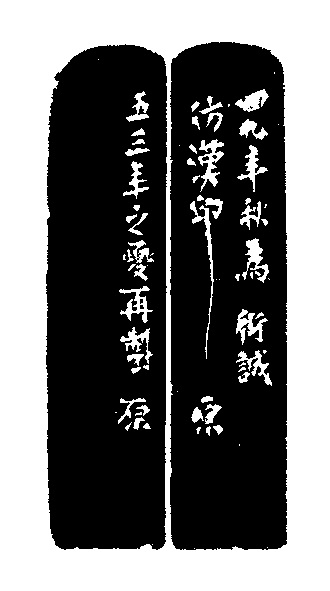 四九年秋為 衍誠
仿漢印 原
五三年之夏再製 原